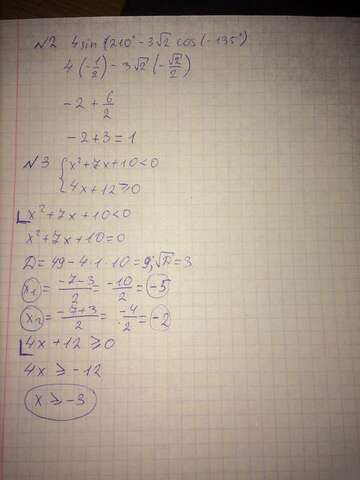 №2 4sin(210° - 3√2 cos(-135°)
4(-1/2) - 3√2(-√2/2)
-2 + 6/2
-2+3=1
№3 { x²+7x+10<0
4x+12≥0
x²+7x+10<0
x²+7x+10=0
D=49-4·1·10=9; √D=3
x₁ = (-7-3)/2 = -10/2 = -5
x₂ = (-7+3)/2 = -4/2 = -2
4x+12≥0
4x≥-12
x≥-3